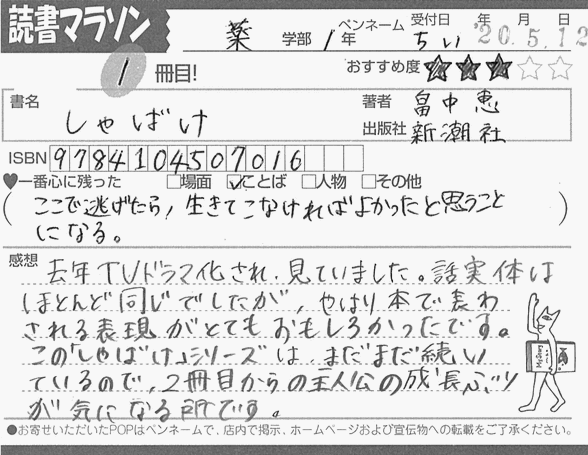 読書マラソン
薬 学部 1年 ペンネーム ちぃ 受付日 '20年 5月 12日
1 冊目!
おすすめ度 ★★★☆☆
書名 しゃばけ
著者 畠中 恵
出版社 新潮社
ISBN 9784104507016
♥一番心に残った □場面 ☑ことば □人物 □その他
(ここで逃げたら、生きてこなければよかったと思うこと
になる。)
感想 去年TVドラマ化され、見ていました。話実体は
ほとんど同じでしたが、やはり本で表わ
される表現がとてもおもしろかったです。
この「しゃばけ」シリーズは、まだまだ続い
ているので、2冊目からの主人公の成長ぶり
が気になる所です。
●お寄せいただいたPOPはペンネームで、店内で掲示、ホームページおよび宣伝物への転載をご了承ください。